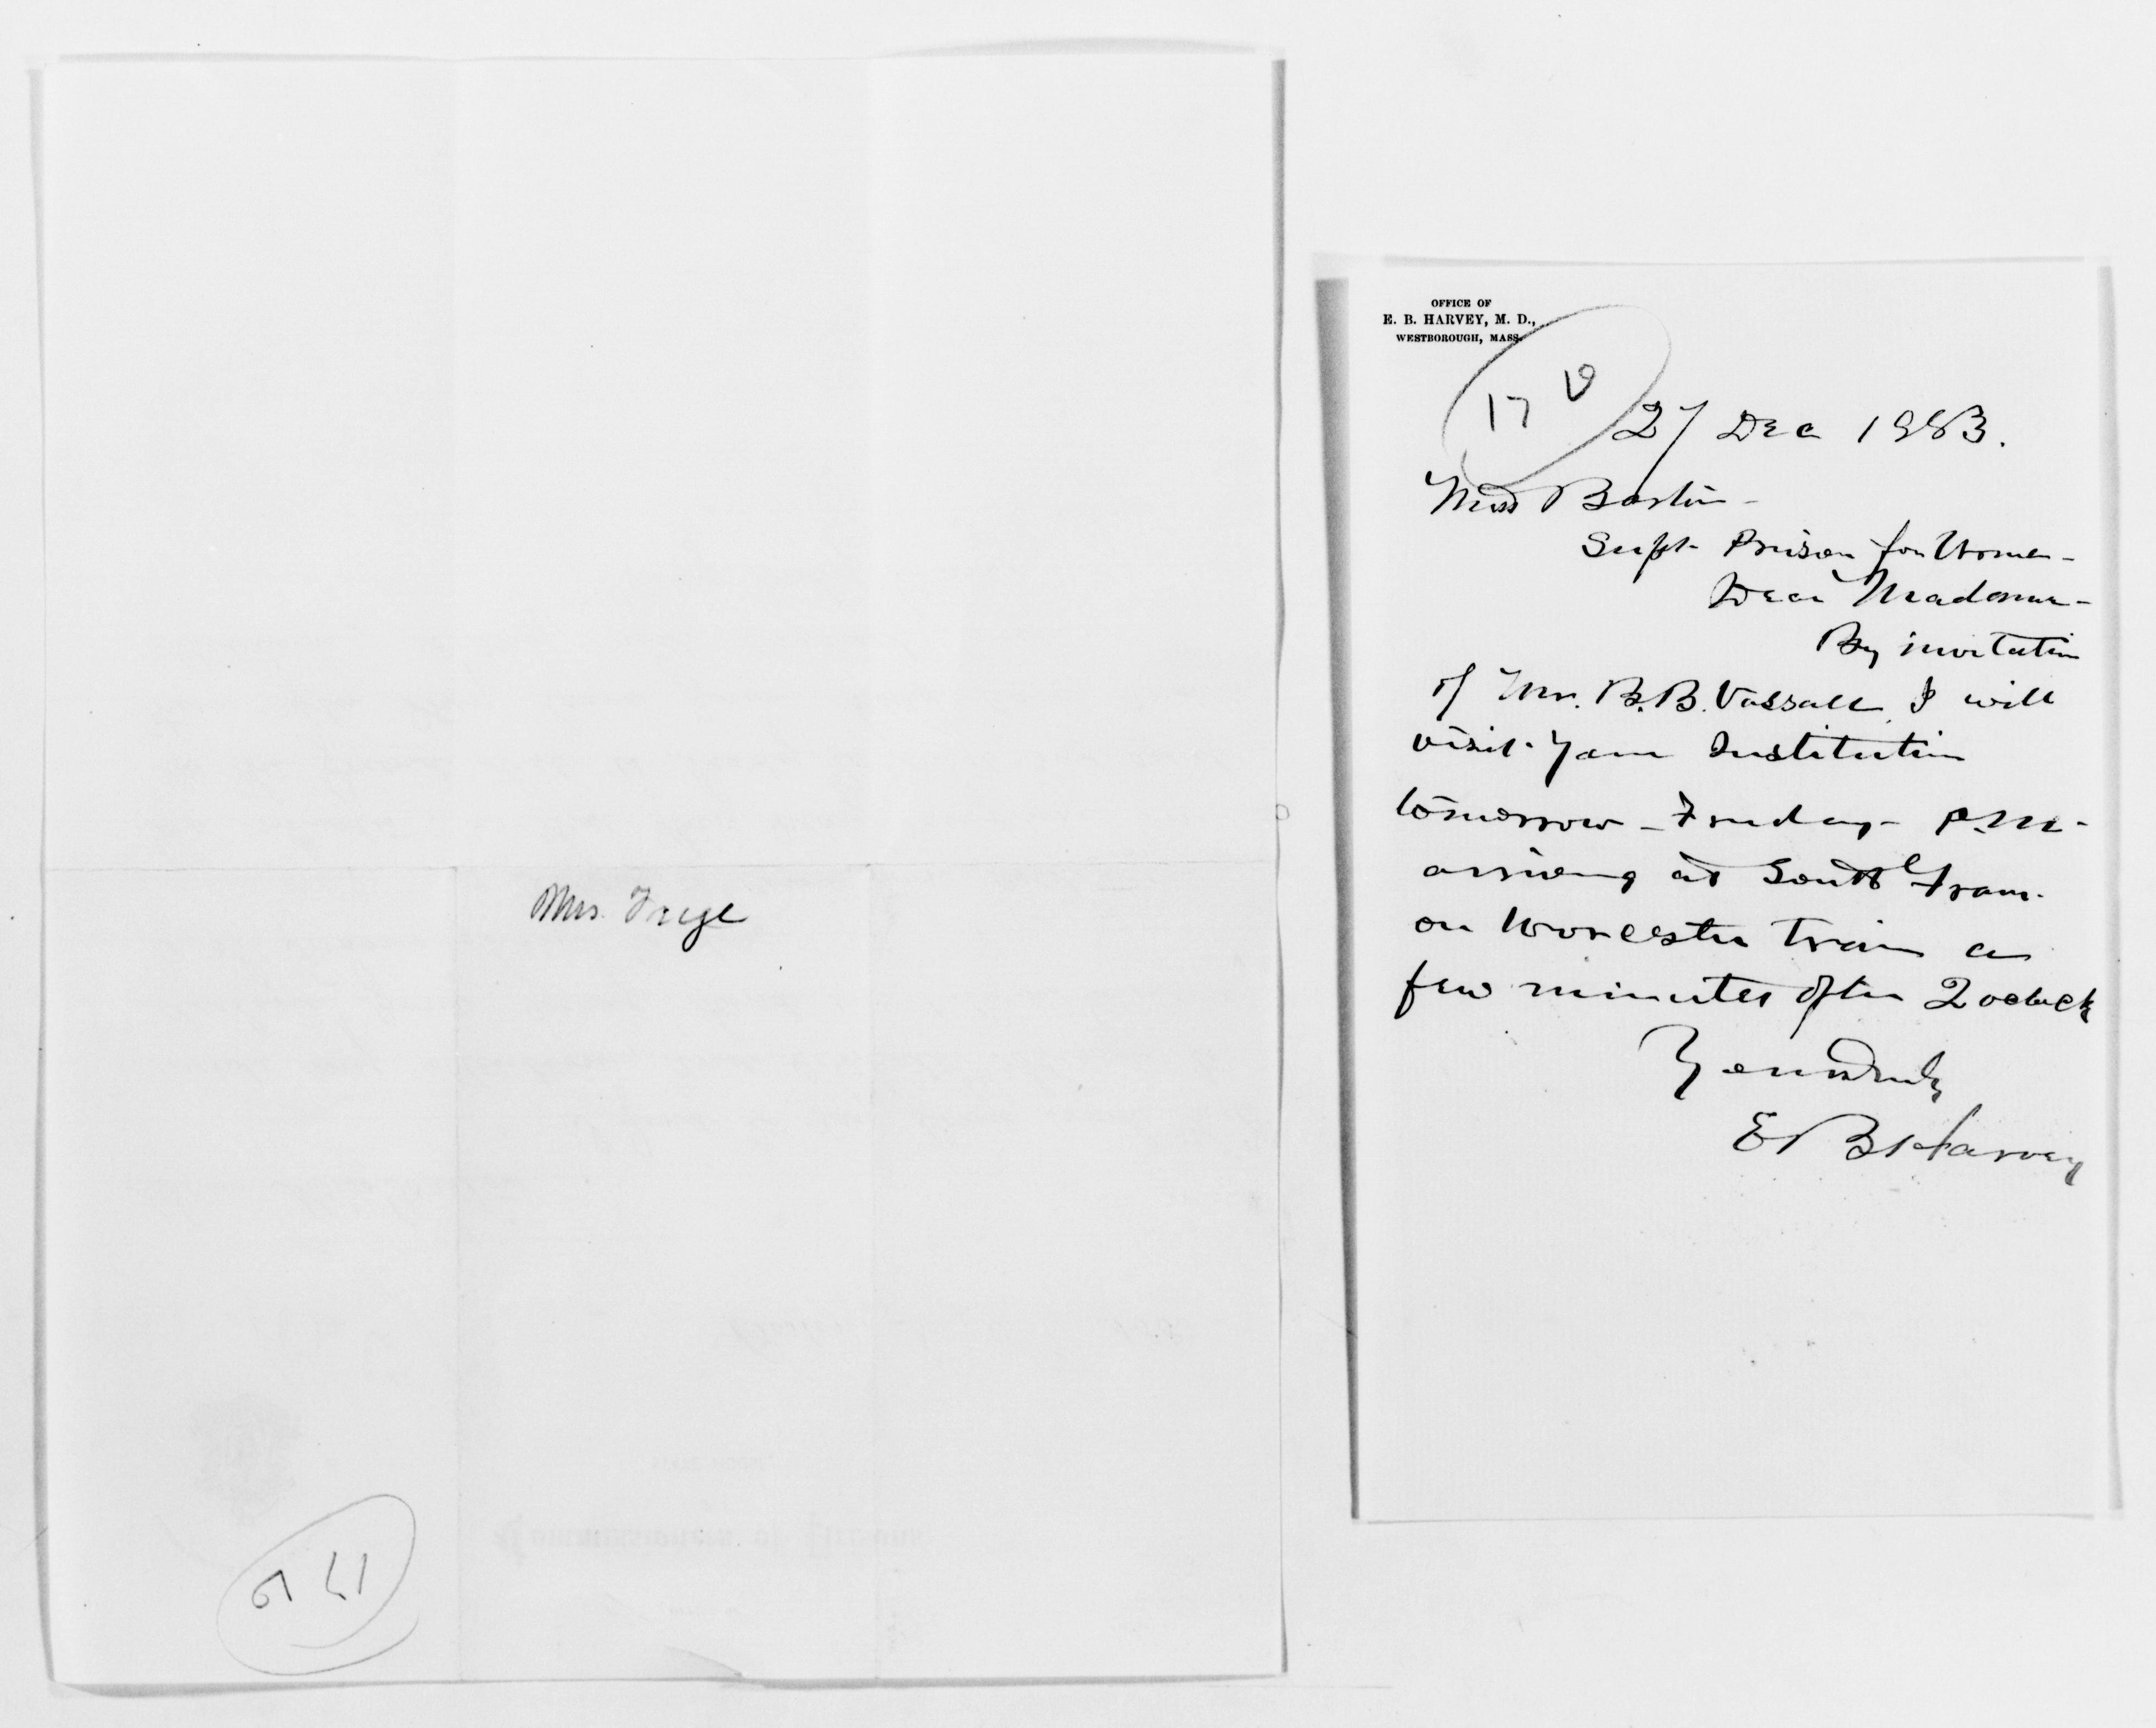 Mrs. Frye
OFFICE OF
E. B. HARVEY, M. D.,
WESTBOROUGH, MASS.
17
27 Dec 1883.
Miss Barton -
Supt- Prison for Women -
Dear Madame -
By invitation
of Mr. B. B. Vassall I will
visit your Institution
tomorrow - Friday - P.M -
arriving at South Fram.
on Worcester train a
few minutes after 2 oclock
Yours truly
E B Harvey